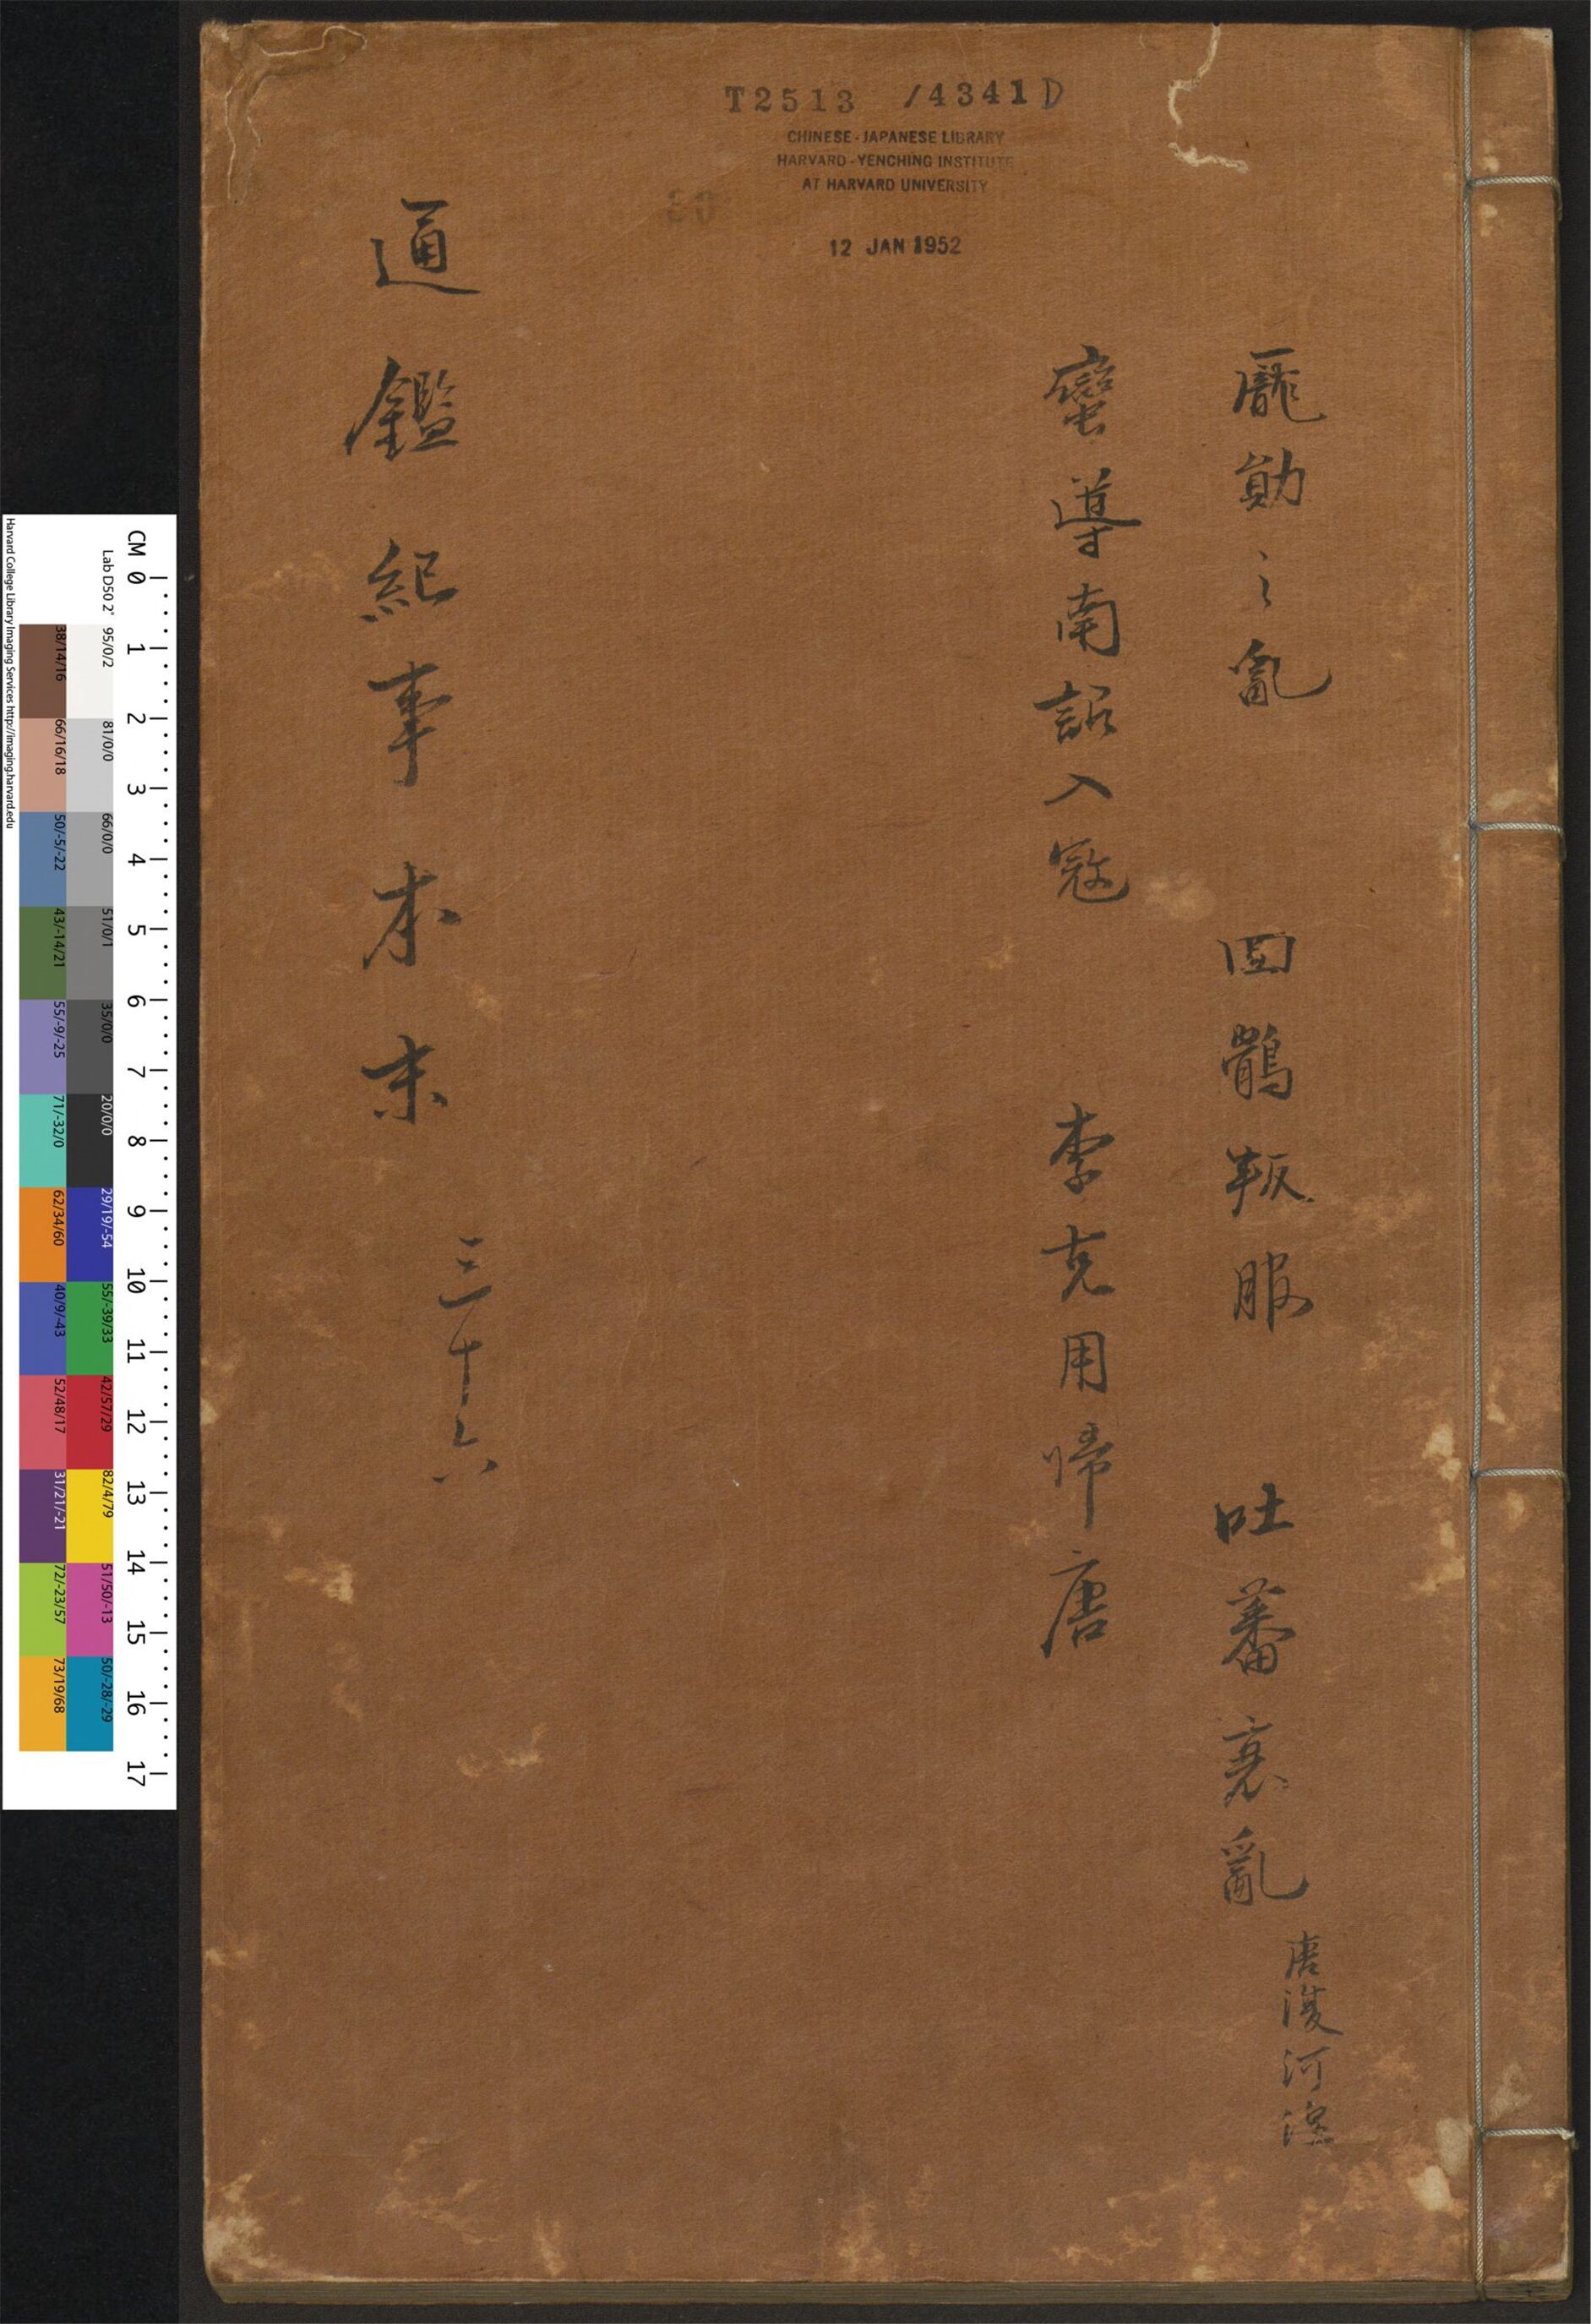 T2513 /4341D
CHINESE-JAPANESE LIBRARY
HARVARD-YENCHING INSTITUTE
AT HARVARD UNIVERSITY
12 JAN 1952
龐勛之亂 回鶻叛服 吐蕃衰亂 唐復河湟
蠻導南詔入寇 李克用歸唐
通鑑紀事本末 三十六
CM 0 1 2 3 4 5 6 7 8 9 10 11 12 13 14 15 16 17
Lab D50 2° 95/0/2 81/0/0 66/0/0 51/0/1 35/0/0 20/0/0 29/19/-54 55/-39/33 42/57/29 82/4/79 51/50/-13 50/-28/-29
38/14/16 66/16/18 50/-5/-22 43/-14/21 55/-9/-25 71/-32/0 62/34/60 40/9/-43 52/48/17 31/21/-21 72/-23/57 73/19/68
Harvard College Library Imaging Services http://imaging.harvard.edu